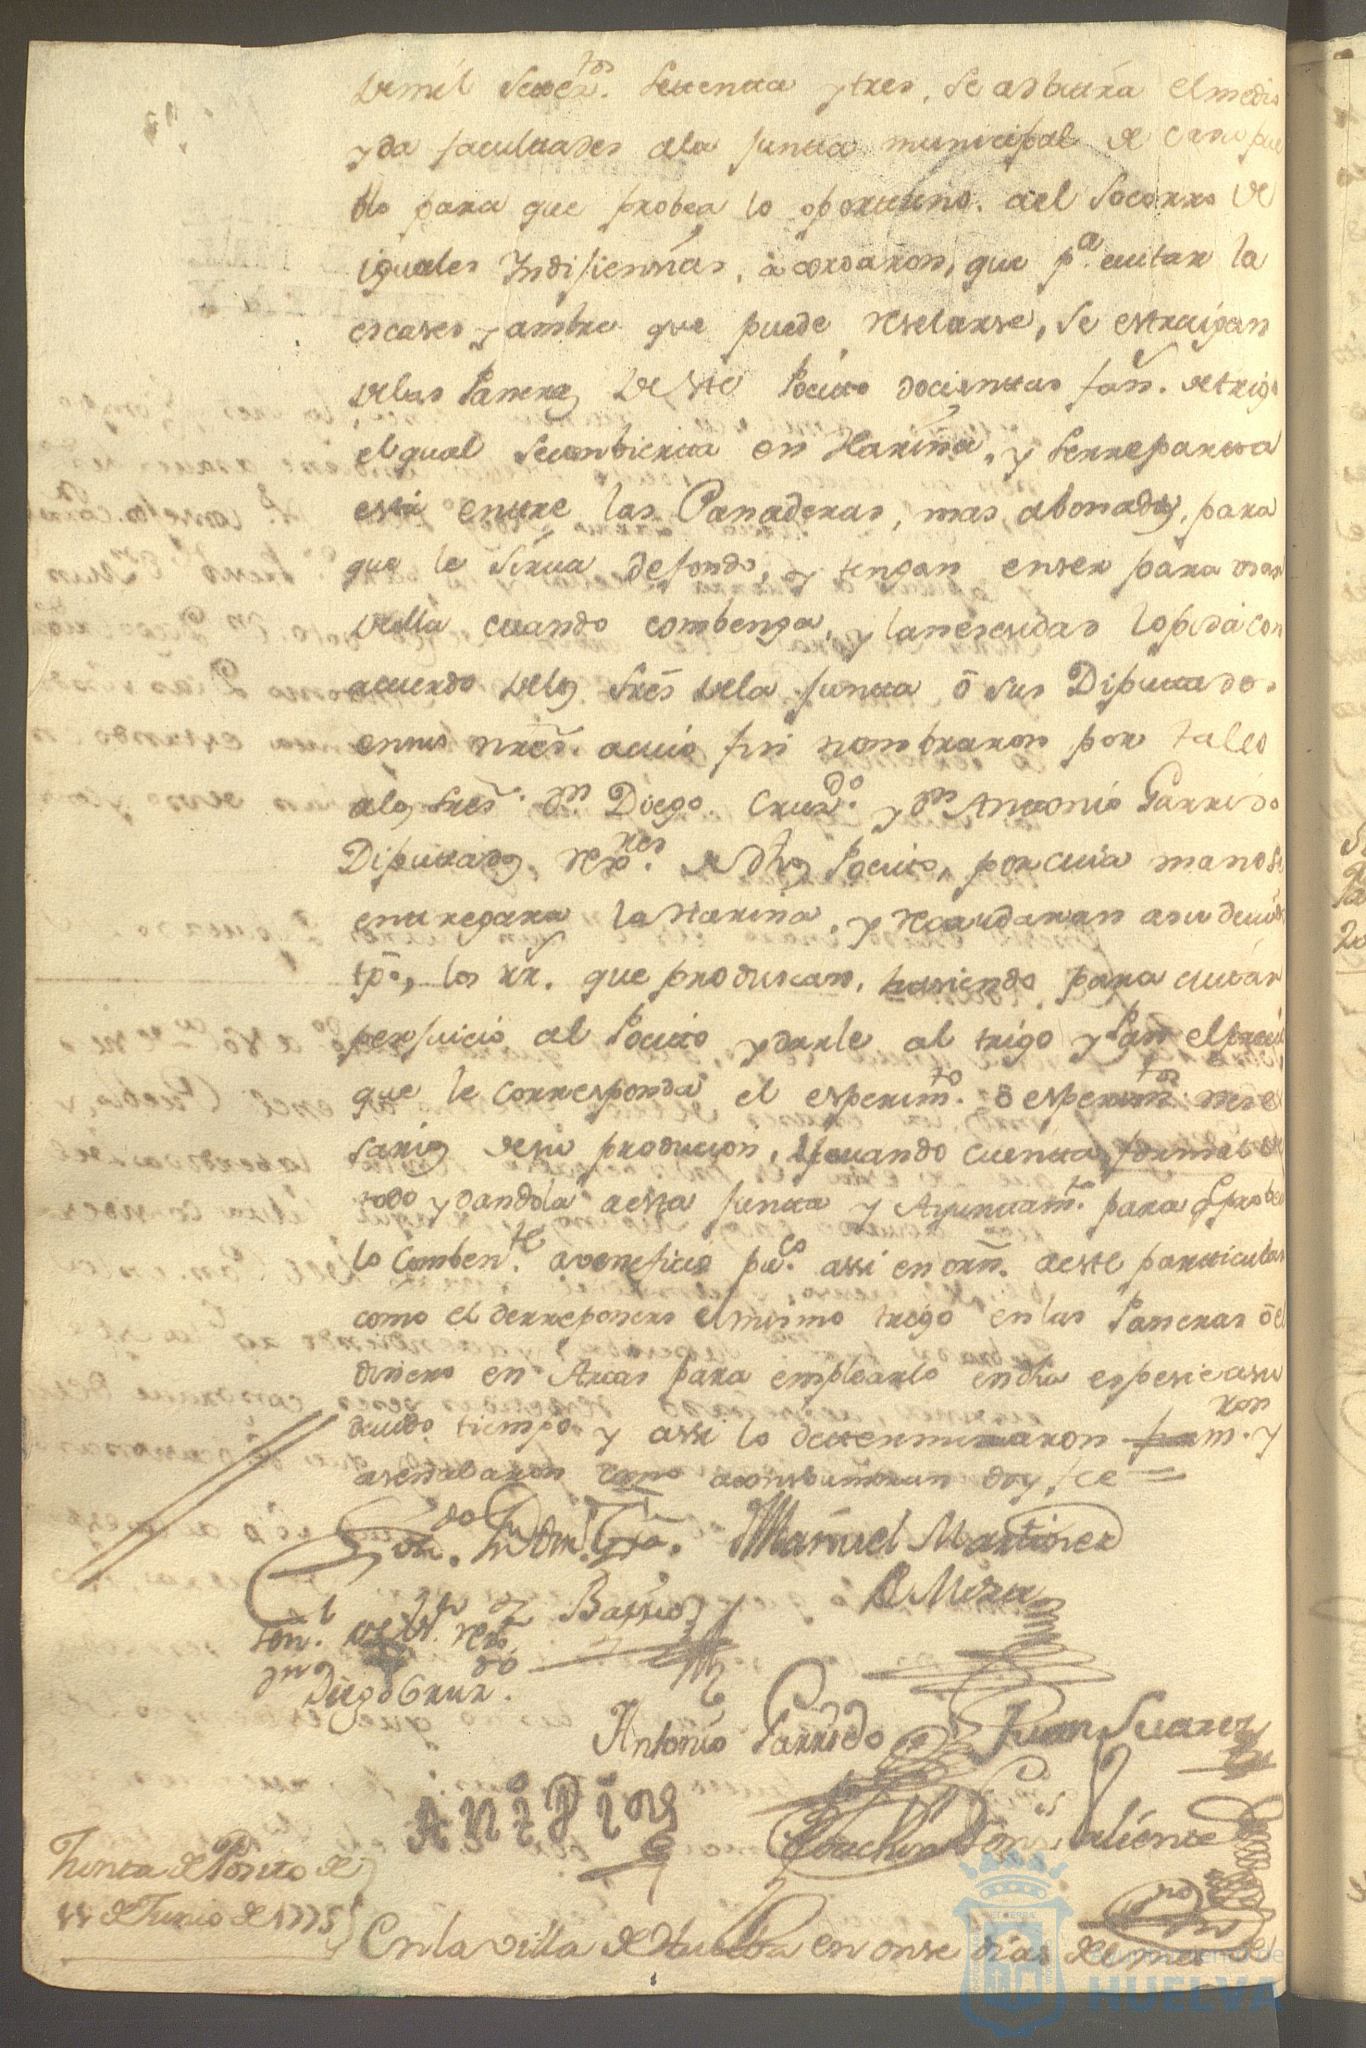 de mil Setez.tos Settenta y tres, se adbittrá el medio
y da facultades a la Juntta municipal de cada pue
blo para que probea lo oporttuno, al Socorro de
iguales Yndijencias, acordaron, que p.a evitar la
escases y ambre que puede reselarse, se estraigan
de las Paneras de este Pocitto docienttas fan.s de trigo
el qual se combiertta en Harina, y se rreparta
esta enttre las Panaderas, mas abonadas, para
que le sirva de fondo, y tengan enser para usar
de ella cuando combenga, y la nesesidad lo pida con
acuerdo de los Sres de la Juntta, ó sus Diputtados
a cuio fin nombraron por tales
a los Sres. Dn Diego Cruzdo. y Dn Antonio Garrido
Diputtados de dho Pocitto, por cuia mano se
enttregara la Harina, y recaudaran a su devido
tpo, los rr. que produscan, hasiendo para evitar
perjuicio al Pocitto y darle al trigo y Pan el precio
que le corresponda el esperim.to ó esperim.tos nese
sarios de su producion, llevando cuentta formal de
todo y dandola a esta Juntta y Ayunttam.to para q.e probea
lo Comben.te a veneficio pu.co assi en orn. a este partticular
como el de rreponers el mismo trigo en las Paneras ó el
dinero en Arcas para emplearlo en dha espesie a su
devido tiempo y assi lo determinaron firmaron y
señalaron como acostumbran doy fee =
Manuel Martinez
Barrios
de Mora
Diego Cruz.do
Antonio Garrido Juan Suarez
Joachin Ponz Valiente
Juntta de Posito de
11 de Junio de 1773
En la villa de Huelva en onse dias del mes de
Ayuntamiento de
HUELVA